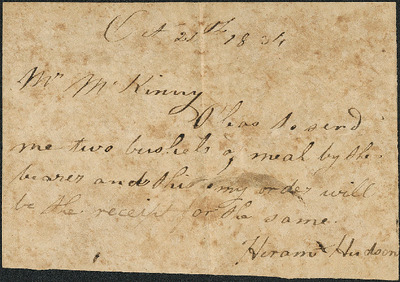 Oct 21th 1834
Mr McKinny
Pleas to send
me two bushels of meal by the
bearer and this my order will
be the receit for the same.
Hiram Hudson